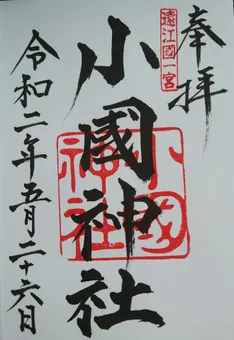 奉拝
遠江國一宮
小國神社
小國神社
令和二年五月二十六日